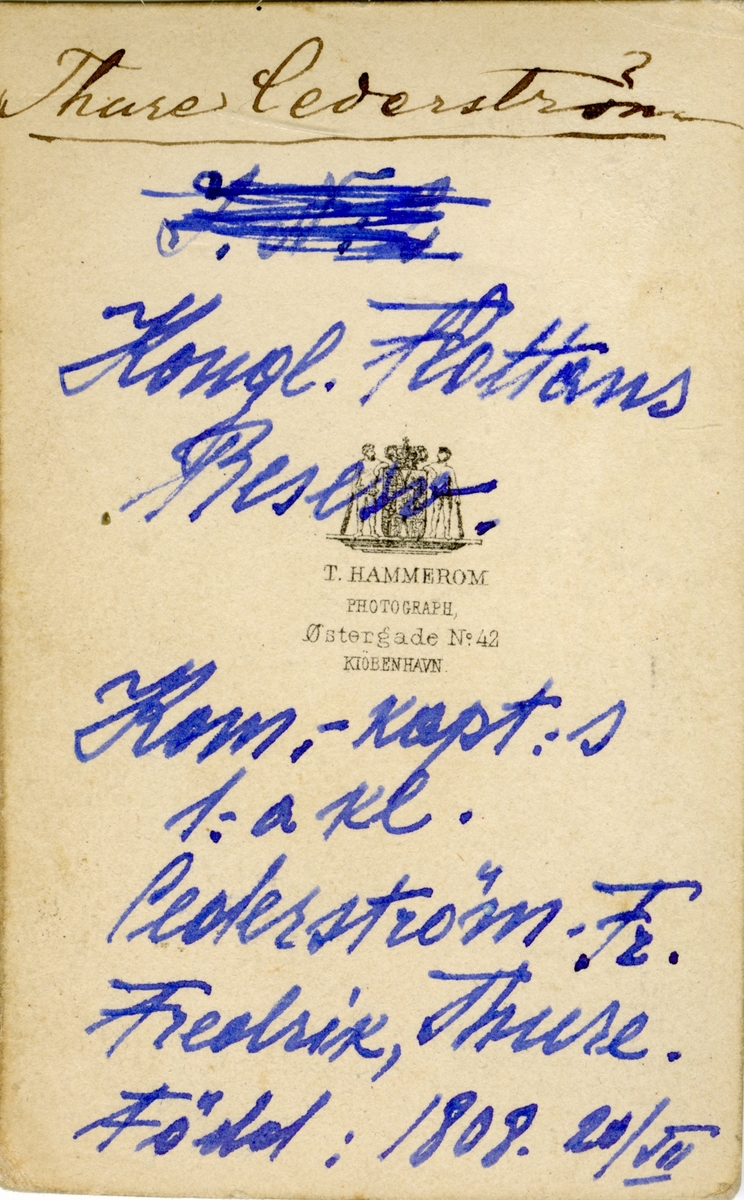 Thure Cederström
Kongl. Flottans
Reserv.
T. HAMMEROM
PHOTOGRAPH,
Østergade No. 42
KIÖBENHAVN.
Kom.-kapt:s
1:a kl.
Cederström. Fr.
Fredrik, Thure.
Född: 1808. 20/VII